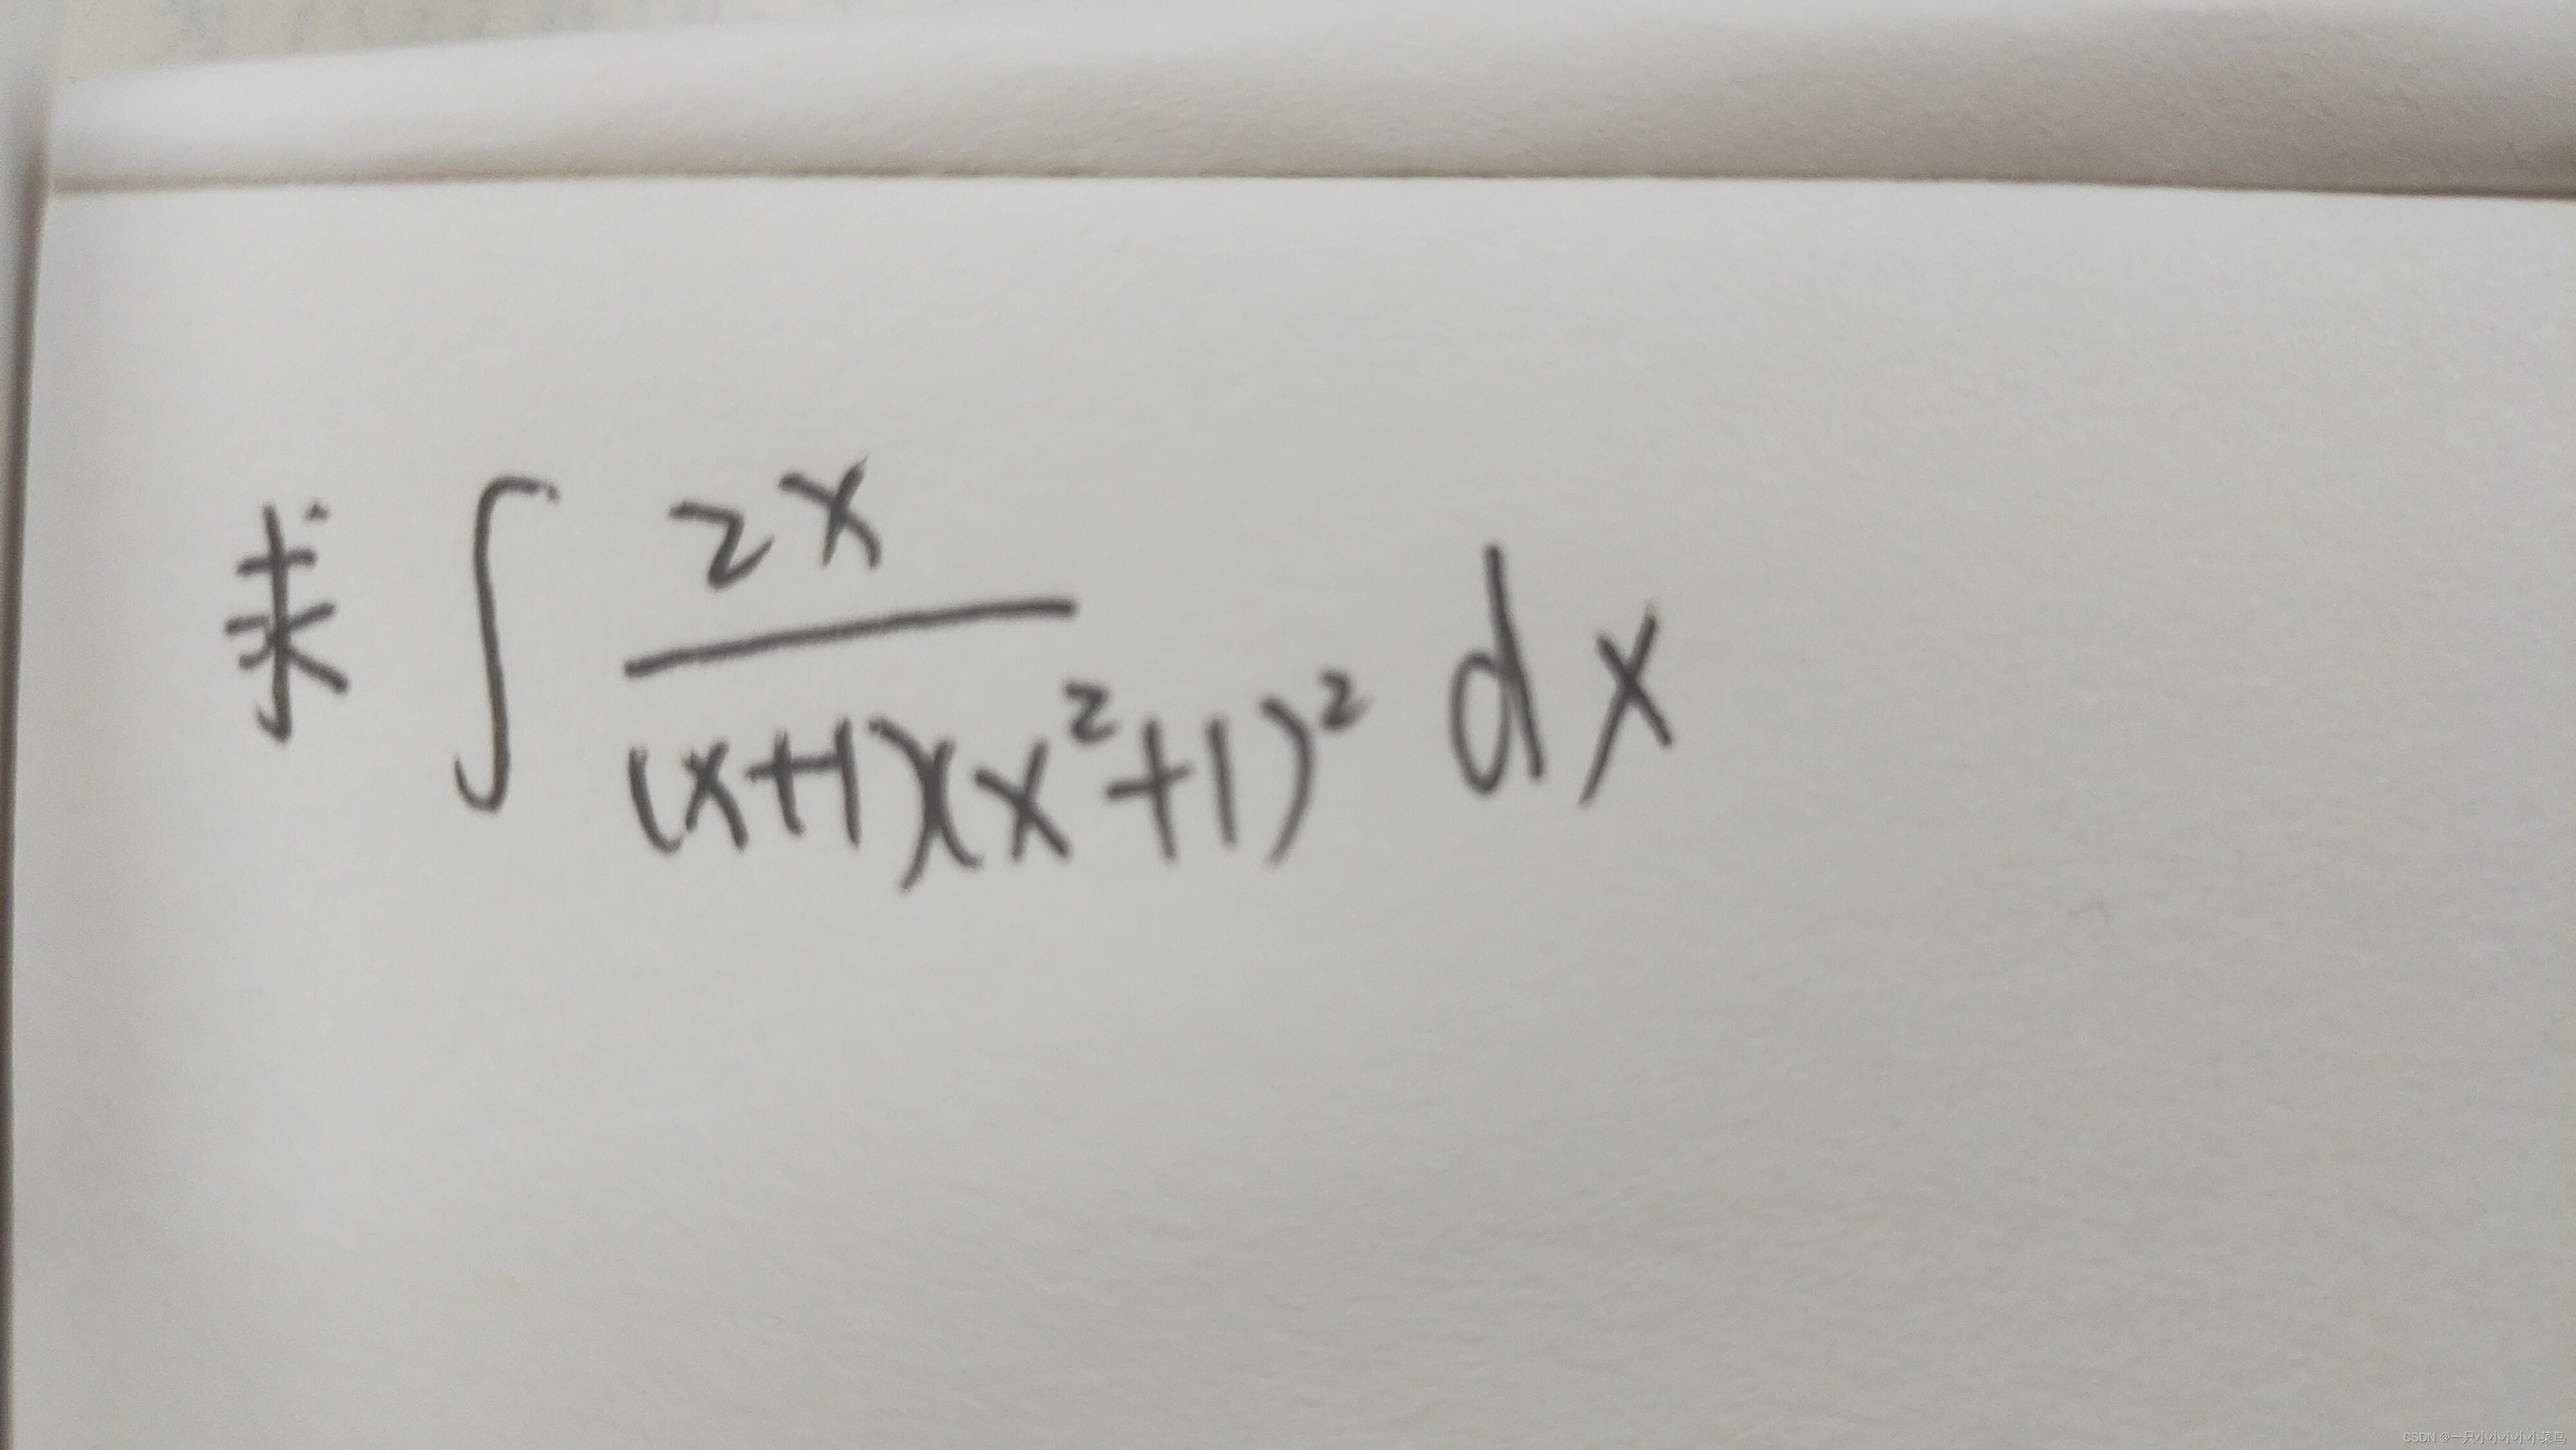 求 ∫ \frac{2x}{(x+1)(x^2+1)^2} dx
CSDN @一只小小小小小菜鸟